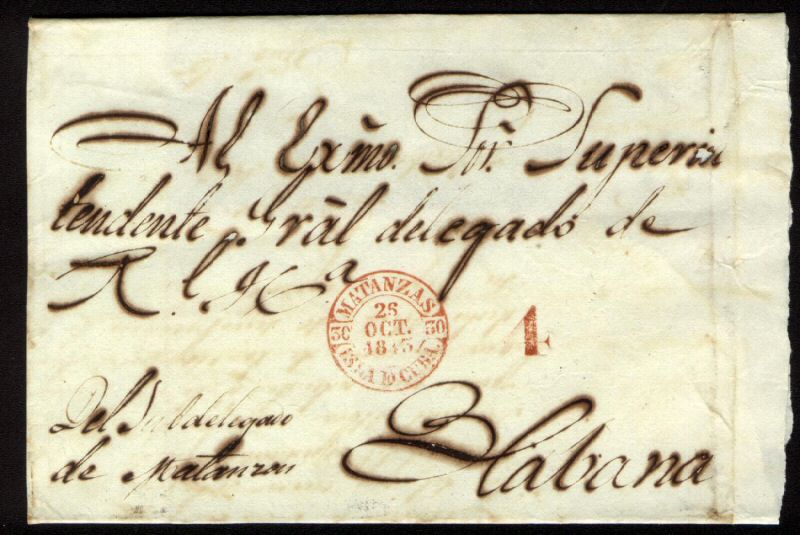 Al Exm̃o. Sor̃. Superin
tendente Grãl delegado de
R.l Hᵃ
MATANZAS
25
OCT.
1845
30
30
ISLA D CUBA.
4
Del Subdelegado
de Matanzas
Habana